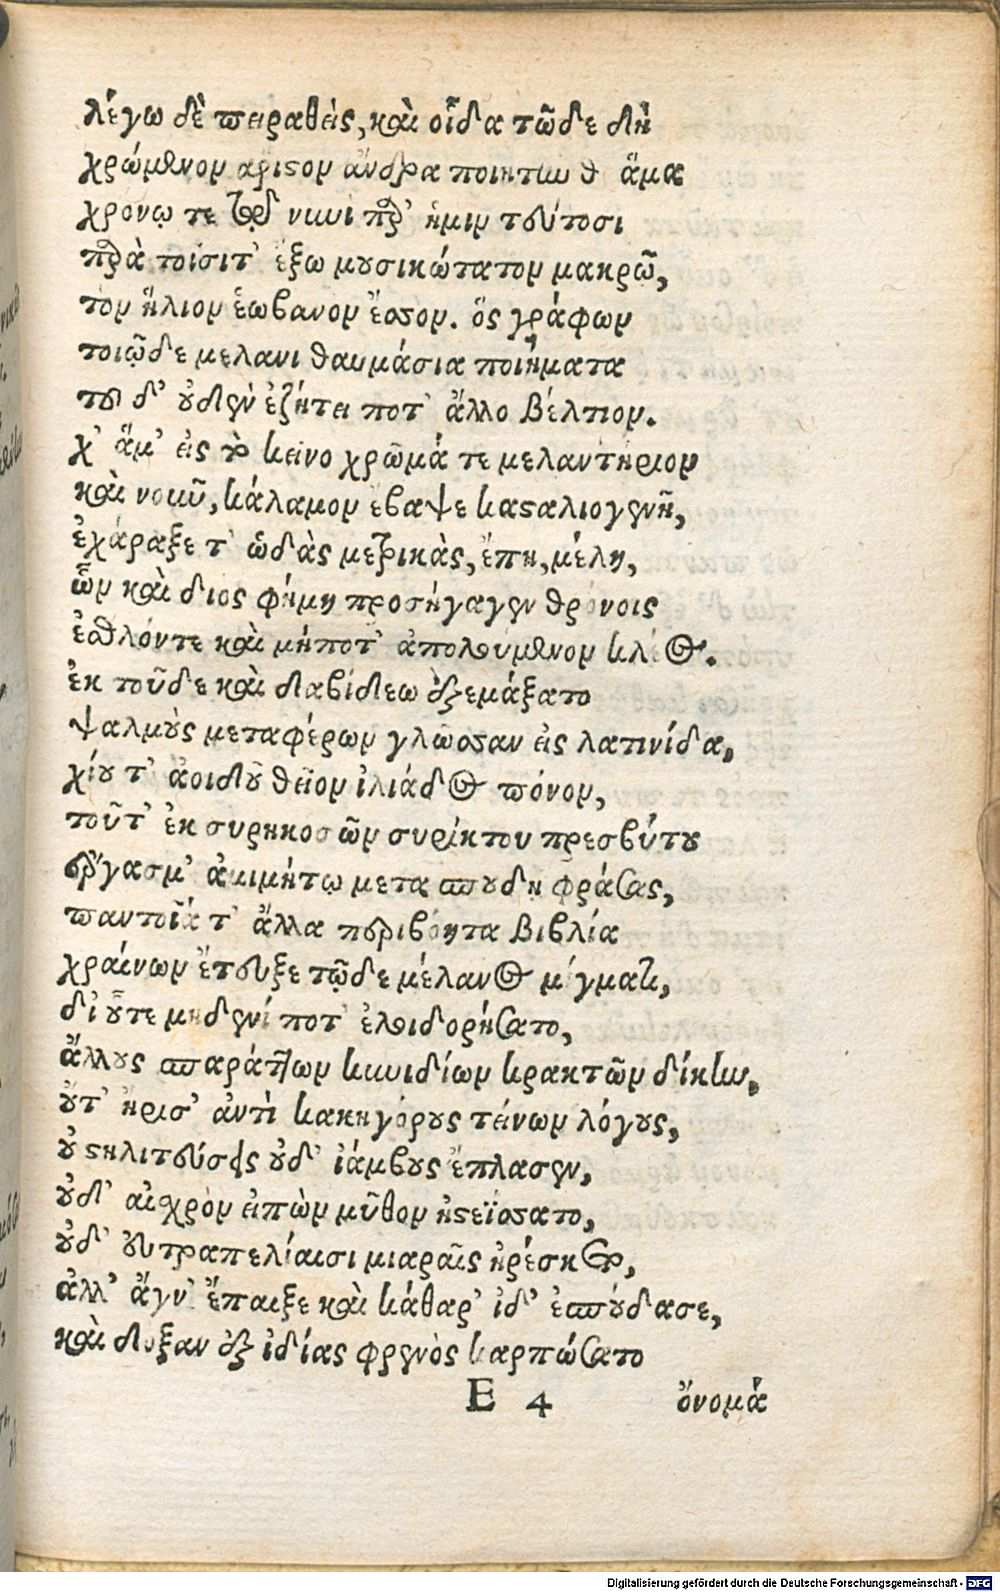 λέγω δὲ πειραθεὶς, καὶ οἶδα τῶδε δὴ
χρώμενον ἄριστον ἄνδρα ποιητὴν θ' ἅμα
χρόνῳ τε τῷ νυνὶ παρ' ἡμῖν τουτοσὶ
παρὰ τοῖσι τ' ἔξω μουσικώτατον μακρῷ,
τὸν ἥλιον ἑωβανον ἔσσον. ὃς γράφων
τοιῷδε μελανι θαυμάσια ποιήματα
του δ' οὐδὲν ἐζήτει ποτ' ἄλλο βέλτιον.
χ' ἅμ' εἰς τὸ κεῖνο χρῶμά τε μελαντήριον
καὶ νοκῦ, κάλαμον ἔβαψε κασταλιογενῆ,
ἐχάραξε τ' ᾠδὰς μετρικὰς, ἔπη, μέλη,
ὧν καὶ διὸς φήμη προσήγαγεν θρόνοις
ἐσθλόντε καὶ μήποτ' ἀπολούμενον κλέος.
ἐκ τοῦδε καὶ δαβίδεω ἐξεμάξατο
ψαλμοὺς μεταφέρων γλῶσσαν εἰς λατινίδα,
χίου τ' ἀοιδοῦ θεῖον ἰλιάδος πόνον,
τοῦτ' ἐκ συρηκοσῶν συρίκτου πρεσβύτου
ἔργασμ' ἀμιμήτῳ μετα σπουδῇ φράσας,
παντοῖά τ' ἄλλα περιβόητα βιβλία
χραίνων ἔτευξε τῷδε μέλανος μίγματι,
δι' οὗτε μηδενί ποτ' ἐλοιδορήσατο,
ἄλλους σπαράττων κυνιδίων κρακτῶν δίκην,
οὔτ' ἤρισ' ἀντὶ κακηγόρους τείνων λόγους,
οὐ στηλιτεύσεις οὐδ' ἰάμβους ἔπλασεν,
οὐδ' αἰσχρὸν εἰπὼν μῦθον ἠστεΐσσατο,
οὐδ' εὐτραπελίαισι μιαραῖς ἠρέσκετο,
ἀλλ' ἅγν' ἔπαιξε καὶ κάθαρ' ἰδ' ἐσπούδασε,
καὶ δόξαν ἐξ ἰδίας φρενὸς καρπώσατο
E 4 ὄνομά
Digitalisierung gefördert durch die Deutsche Forschungsgemeinschaft - DFG